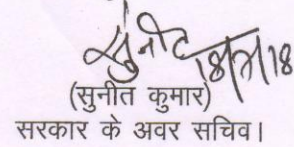 सुनीत
(सुनीत कुमार)
सरकार के अवर सचिव।